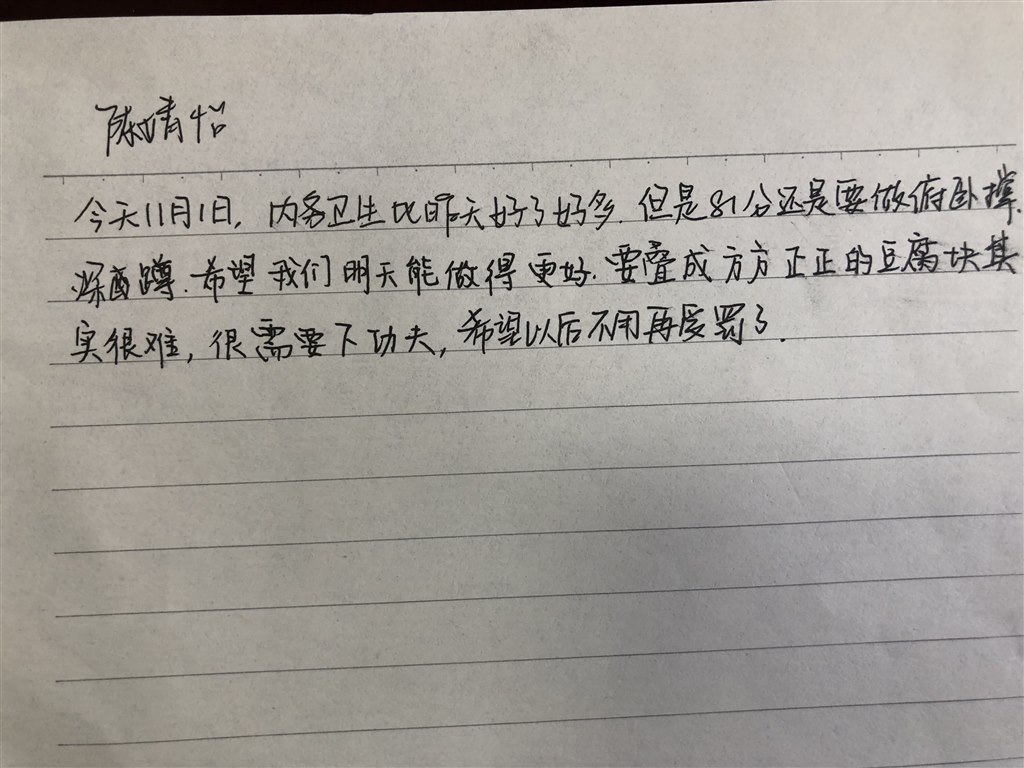 陈婧怡
今天11月1日,内务卫生比昨天好了好多.但是81分还是要做俯卧撑.
深蹲.希望我们明天能做得更好.要叠成方方正正的豆腐块其
实很难,很需要下功夫,希望以后不用再受罚了.